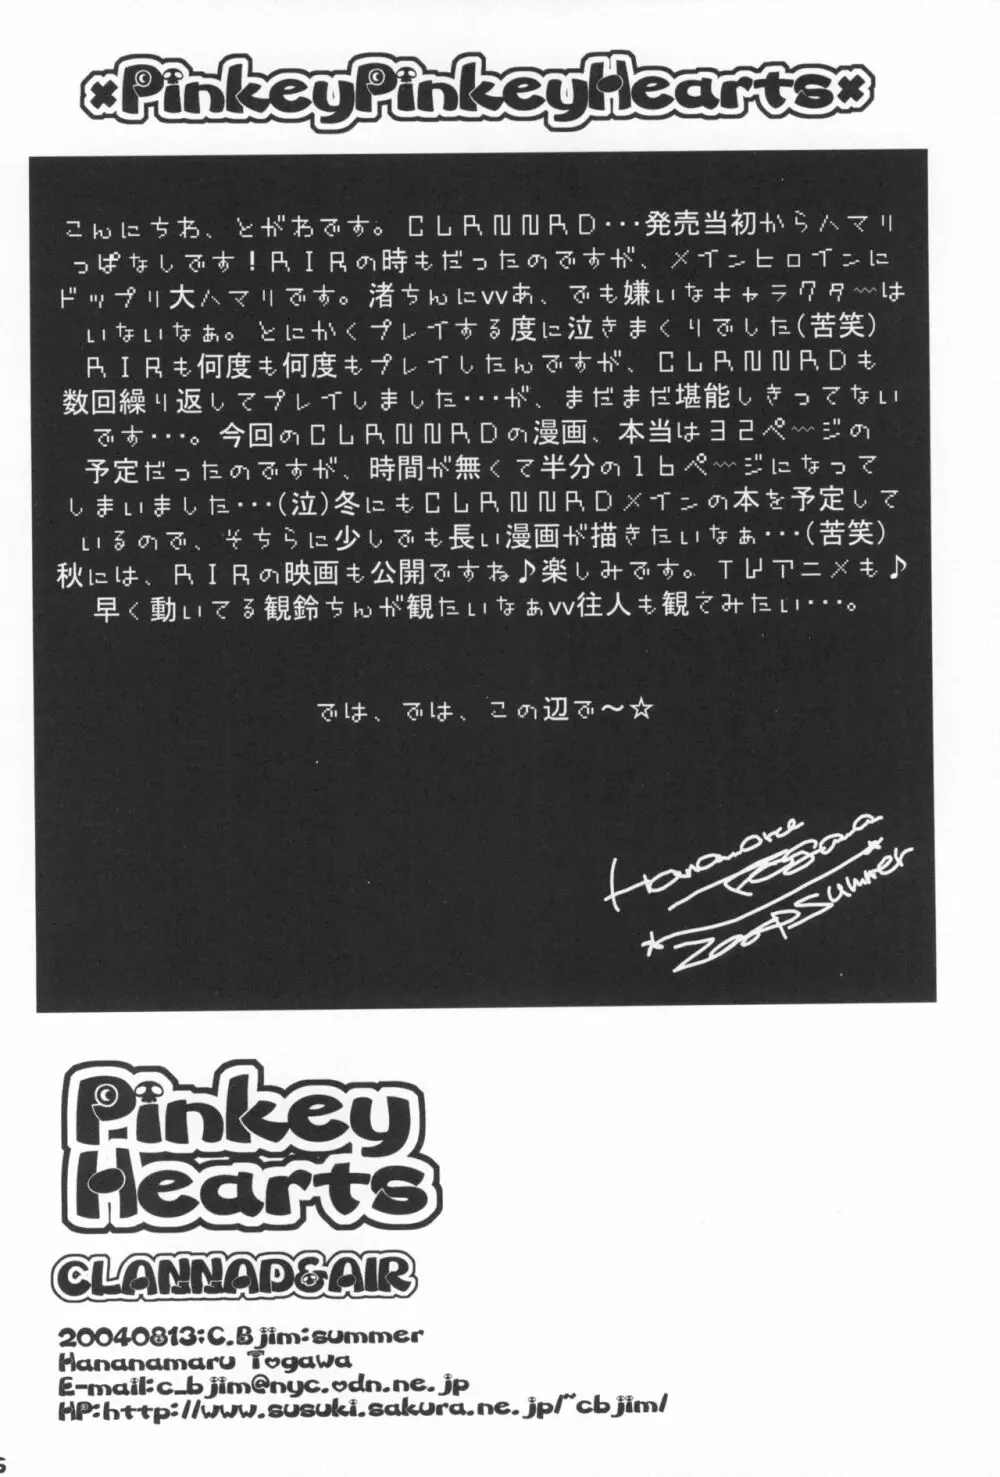 ×PinkeyPinkeyHearts×
こんにちわ、とがわです。CLANNAD・・・発売当初からハマリ
っぱなしです！AIRの時もだったのですが、メインヒロインに
ドップリ大ハマリです。渚ちんにvvあ、でも嫌いなキャラクターは
いないなぁ。とにかくプレイする度に泣きまくりでした(苦笑)
AIRも何度も何度もプレイしたんですが、CLANNADも
数回繰り返してプレイしました・・・が、まだまだ堪能しきってない
です・・・。今回のCLANNADの漫画、本当は32ページの
予定だったのですが、時間が無くて半分の16ページになって
しまいました・・・(泣)冬にもCLANNADメインの本を予定して
いるので、そちらに少しでも長い漫画が描きたいなぁ・・・(苦笑)
秋には、AIRの映画も公開ですね♪楽しみです。TVアニメも♪
早く動いてる観鈴ちんが観たいなぁvv往人も観てみたい・・・。
では、では、この辺で～☆
Hananamaru
Togawa
*2004Summer*
Pinkey
Hearts
CLANNAD&AIR
20040813:C.Bjim:summer
Hananamaru Togawa
E-mail:c_bjim@nyc.odn.ne.jp
HP:http://www.susuki.sakura.ne.jp/~cbjim/